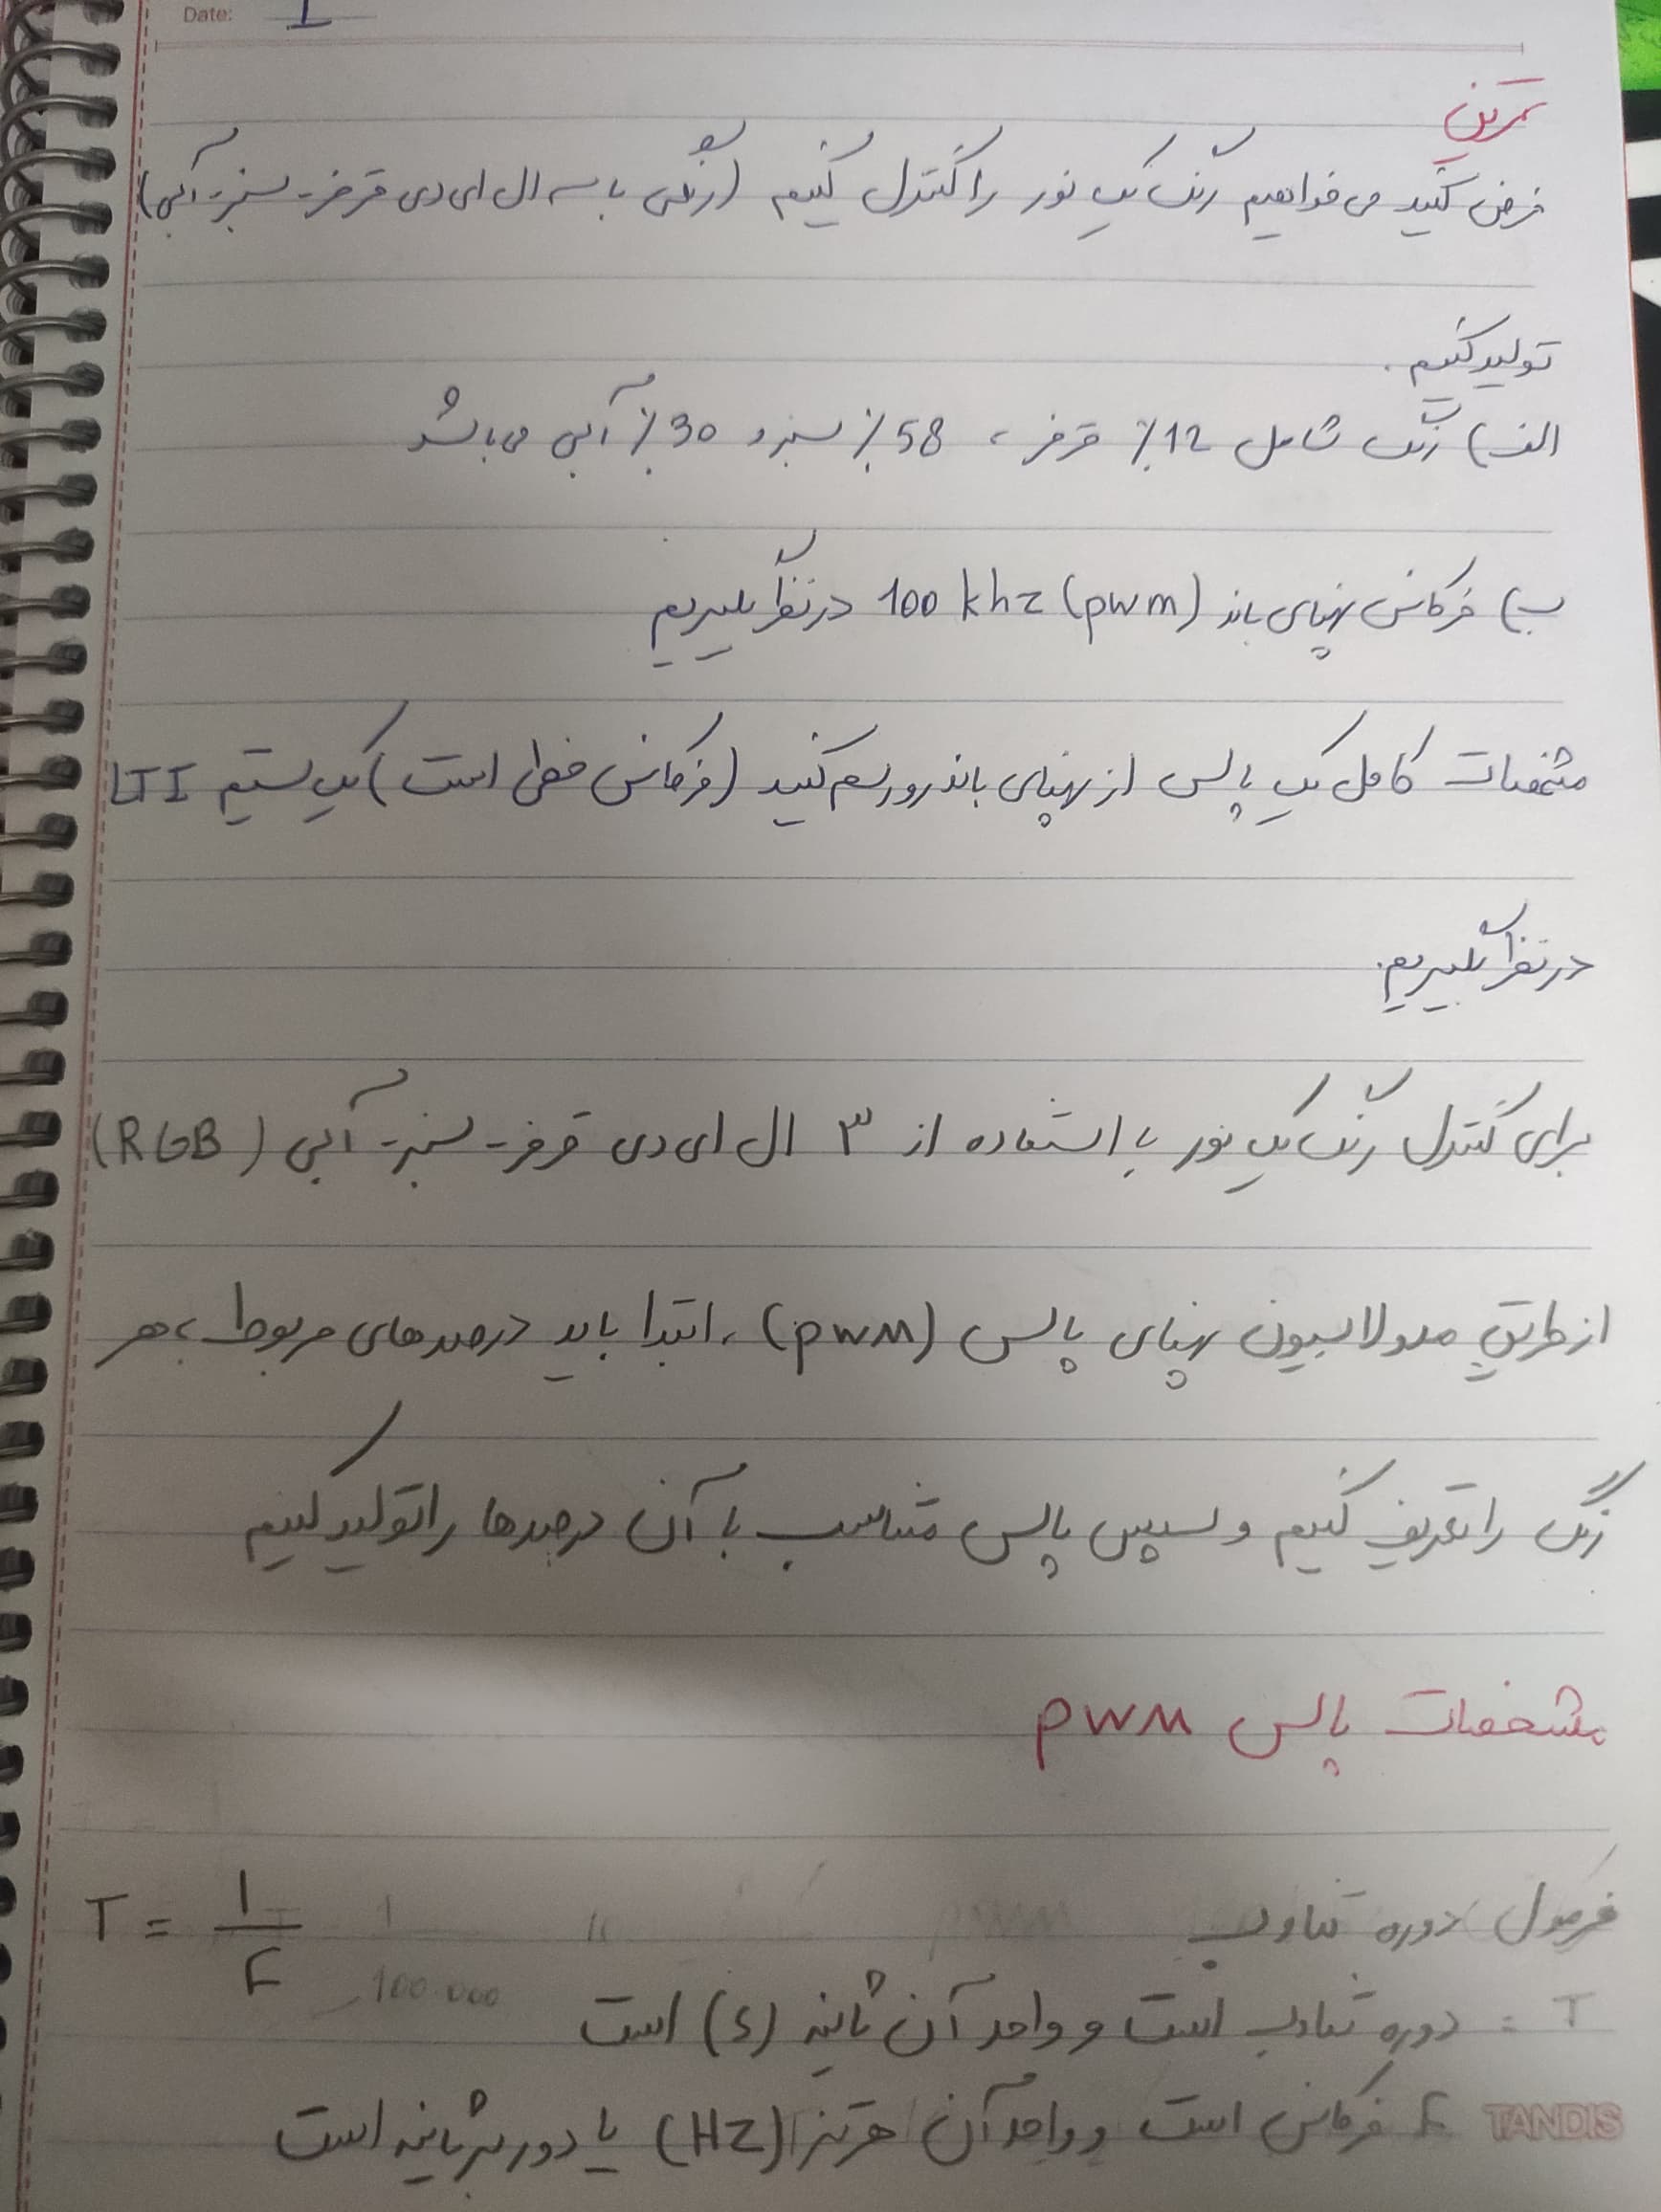 Date: 1
تمرین
فرض کنید می خواهیم رنگ یک نور را کنترل کنیم (رنگی با سه ال ای دی قرمز - سبز - آبی)
تولید کنیم.
الف) رنگ شامل 12٪ قرمز، 58٪ سبز و 30٪ آبی می باشد
ب) فرکانس پهنای باند (pwm) 100 khz در نظر بگیریم
مشخصات کامل یک پالس از پهنای باند رو رسم کنید (فرکانس خطی است) یک سیستم LTI
در نظر بگیریم.
برای کنترل رنگ یک نور با استفاده از ۳ ال ای دی قرمز - سبز - آبی (RGB)
از طریق مدولاسیون پهنای پالس (pwm)، ابتدا باید درصدهای مربوط به هر
رنگ را تعریف کنیم و سپس پالس متناسب با آن درصدها را تولید کنیم
مشخصات پالس pwm
فرمول دوره تناوب T = 1/F
T = دوره تناوب است و واحد آن ثانیه (s) است
F فرکانس است و واحد آن هرتز (HZ) یا دور بر ثانیه است
TANDIS